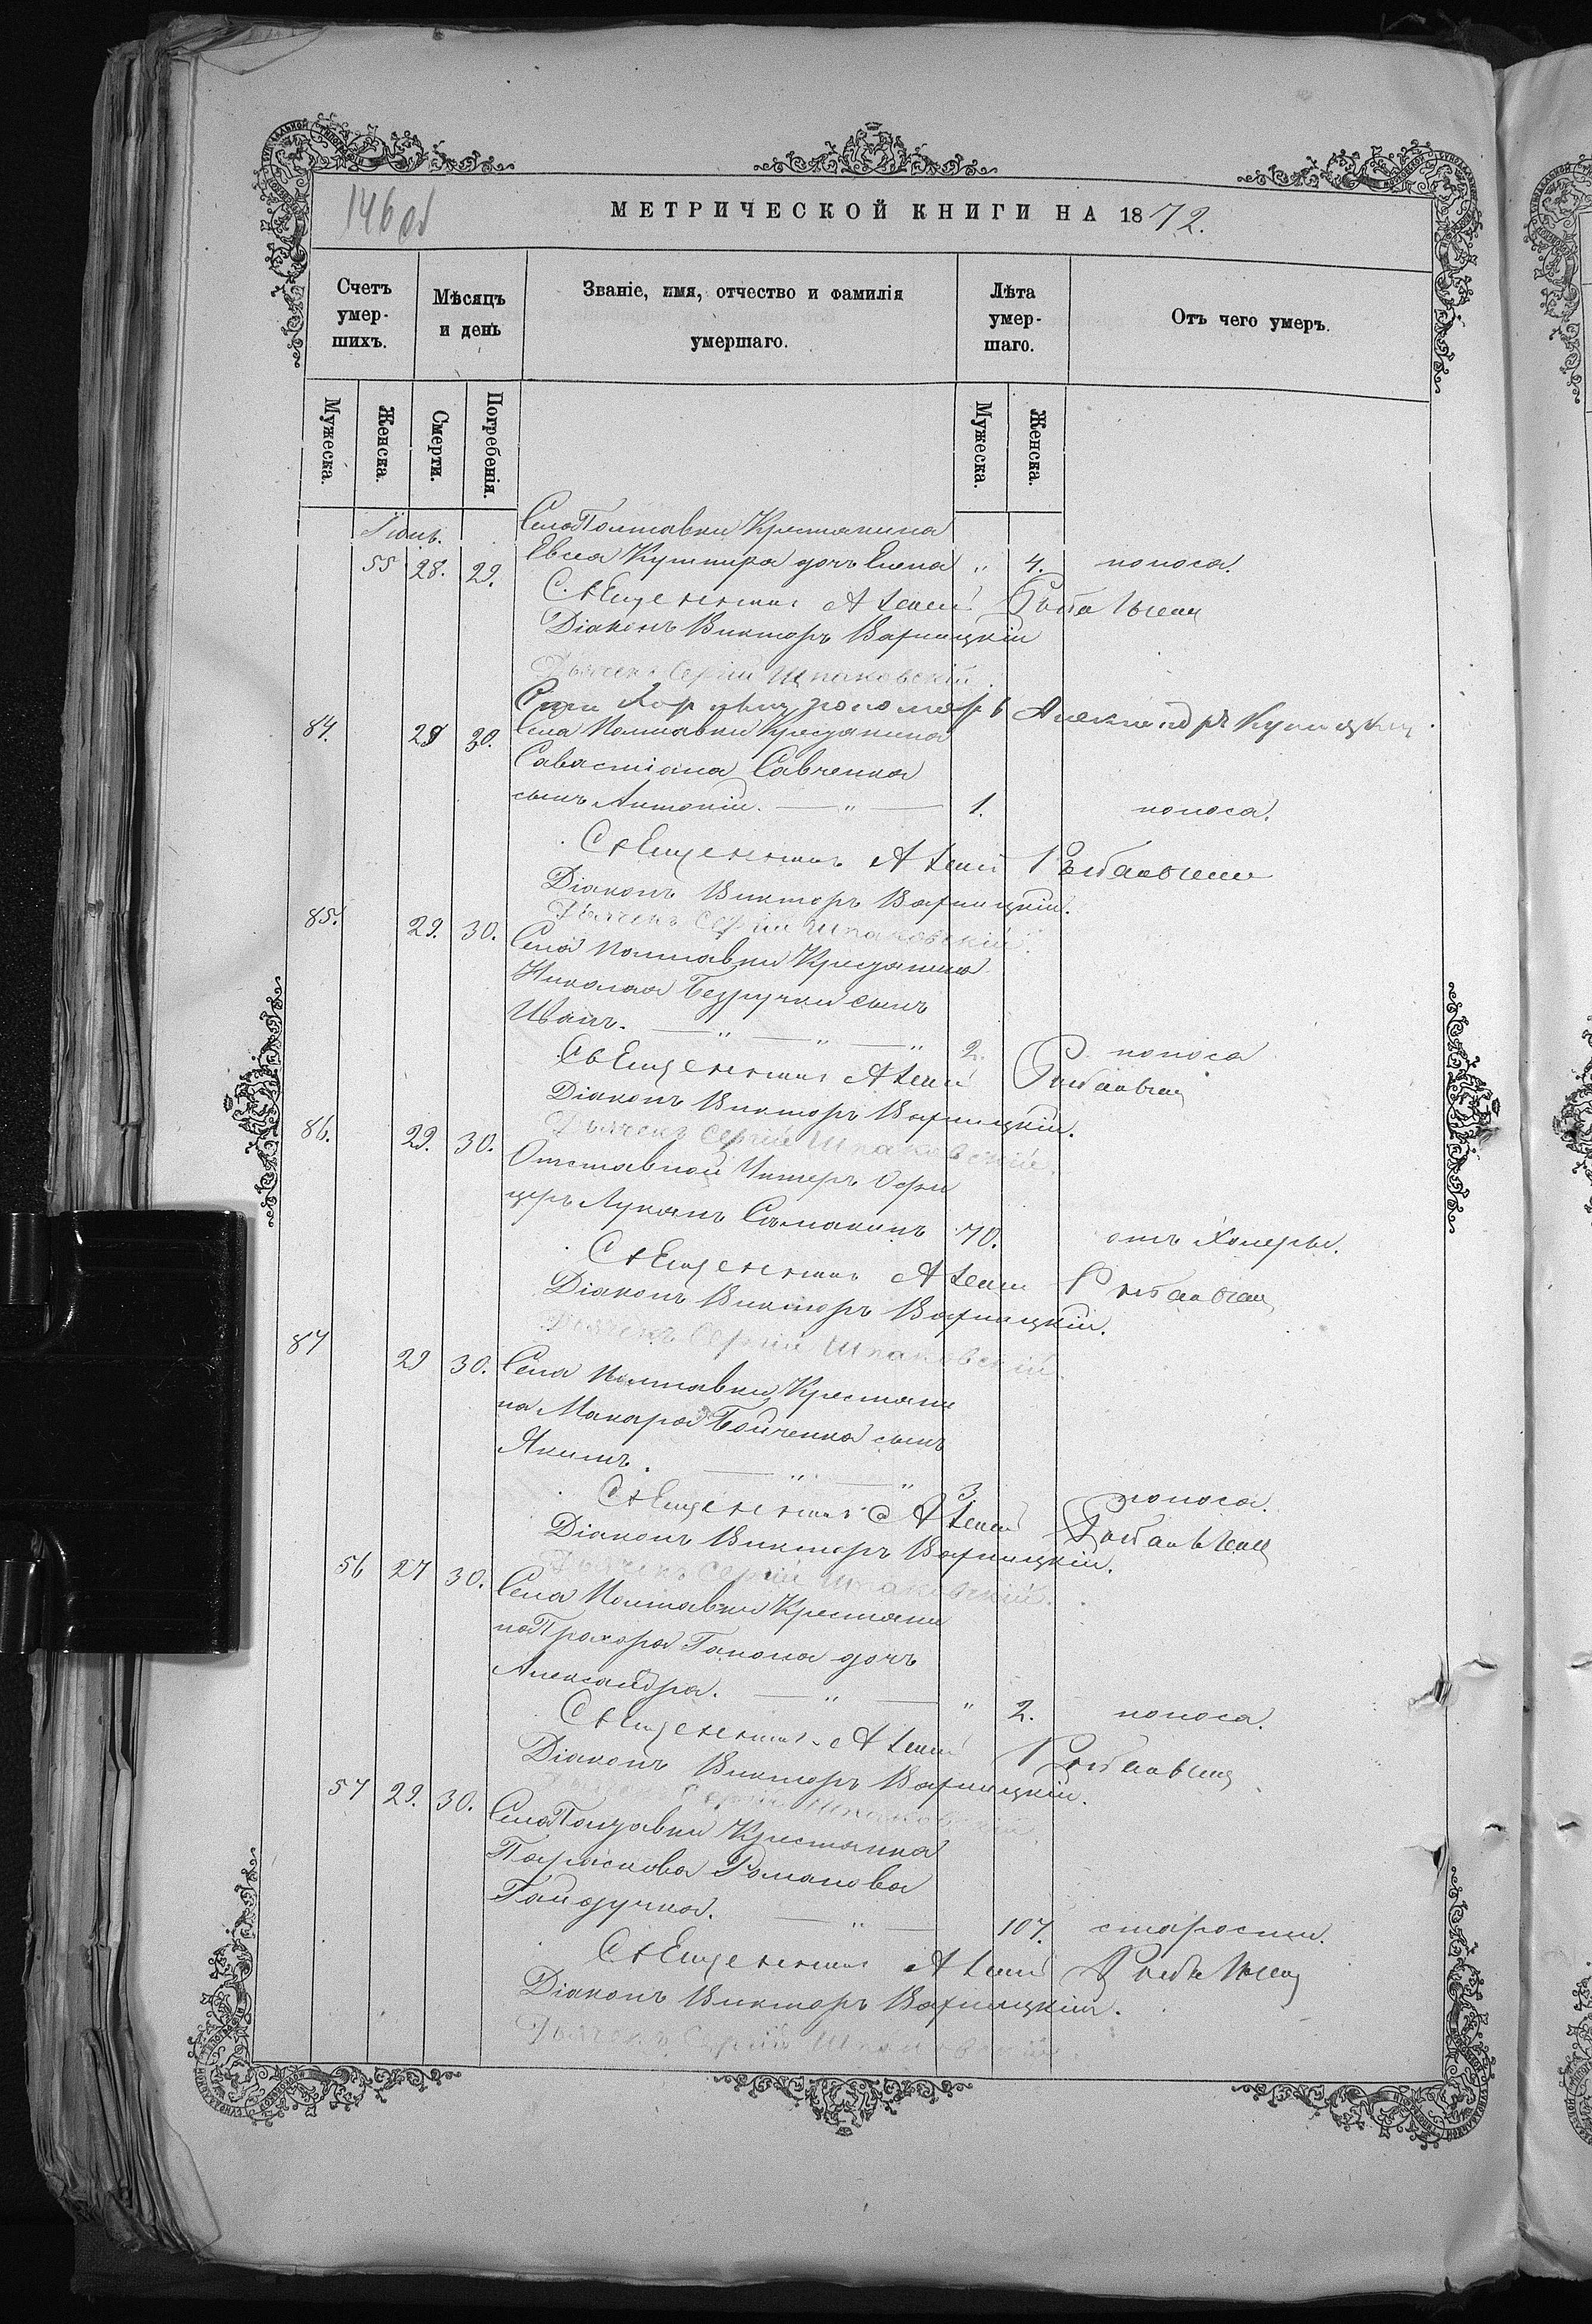 146об
МЕТРИЧЕСКОЙ КНИГИ НА 1872.
Счетъ умер-шихъ.
Мѣсяцъ и день
Званіе, имя, отчество и фамилія умершаго.
Лѣта умер-шаго.
Отъ чего умеръ.
Мужеска. Женска. Смерти. Погребенія. Мужеска. Женска.
Іюнь. Села Полтавки Крестянина
55 28. 29. Евсея Кушнира дочь Елена " 4. поноса.
Священникъ
Діаконъ Викторъ Варницкій
Дьячекъ Сергій Шпаковскій.
Александръ
84. 29 30. Села Полтавки Крестянина
Савастіана Савченка
сынъ Антоній. — " — 1. поноса.
Священникъ
Діаконъ Викторъ Варницкій.
Дьячекъ Сергій Шпаковскій.
85. 29. 30. Села Полтавки Крестянина
Николая Безручки сынъ
Иванъ. — " — " — " 2. поноса
Священникъ
Діаконъ Викторъ Варницкій.
Дьячекъ Сергій Шпаковскій.
86. 29. 30. Отставной Унтеръ Офи
церъ Лукянъ 70. отъ Холеры.
Священникъ
Діаконъ Викторъ Варницкій.
Дьячекъ Сергій Шпаковскій.
87 29 30. Села Полтавки Крестяни
на Макара Бойченка сынъ
Якимъ. — " — " 3. поноса.
Священникъ
Діаконъ Викторъ Варницкій.
Дьячекъ Сергій Шпаковскій.
56 27 30. Села Полтавки Крестяни
на Прохора Гапона дочь
Александра. — " — " 2. поноса.
Священникъ
Діаконъ Викторъ Варницкій.
Дьячекъ Сергій Шпаковскій
57 29. 30. Села Полтавки Крестянка
Параскова Романова
Гайдучка. — " — 107. старости.
Священникъ
Діаконъ Викторъ Варницкій.
Дьячекъ Сергій Шпаковскій.